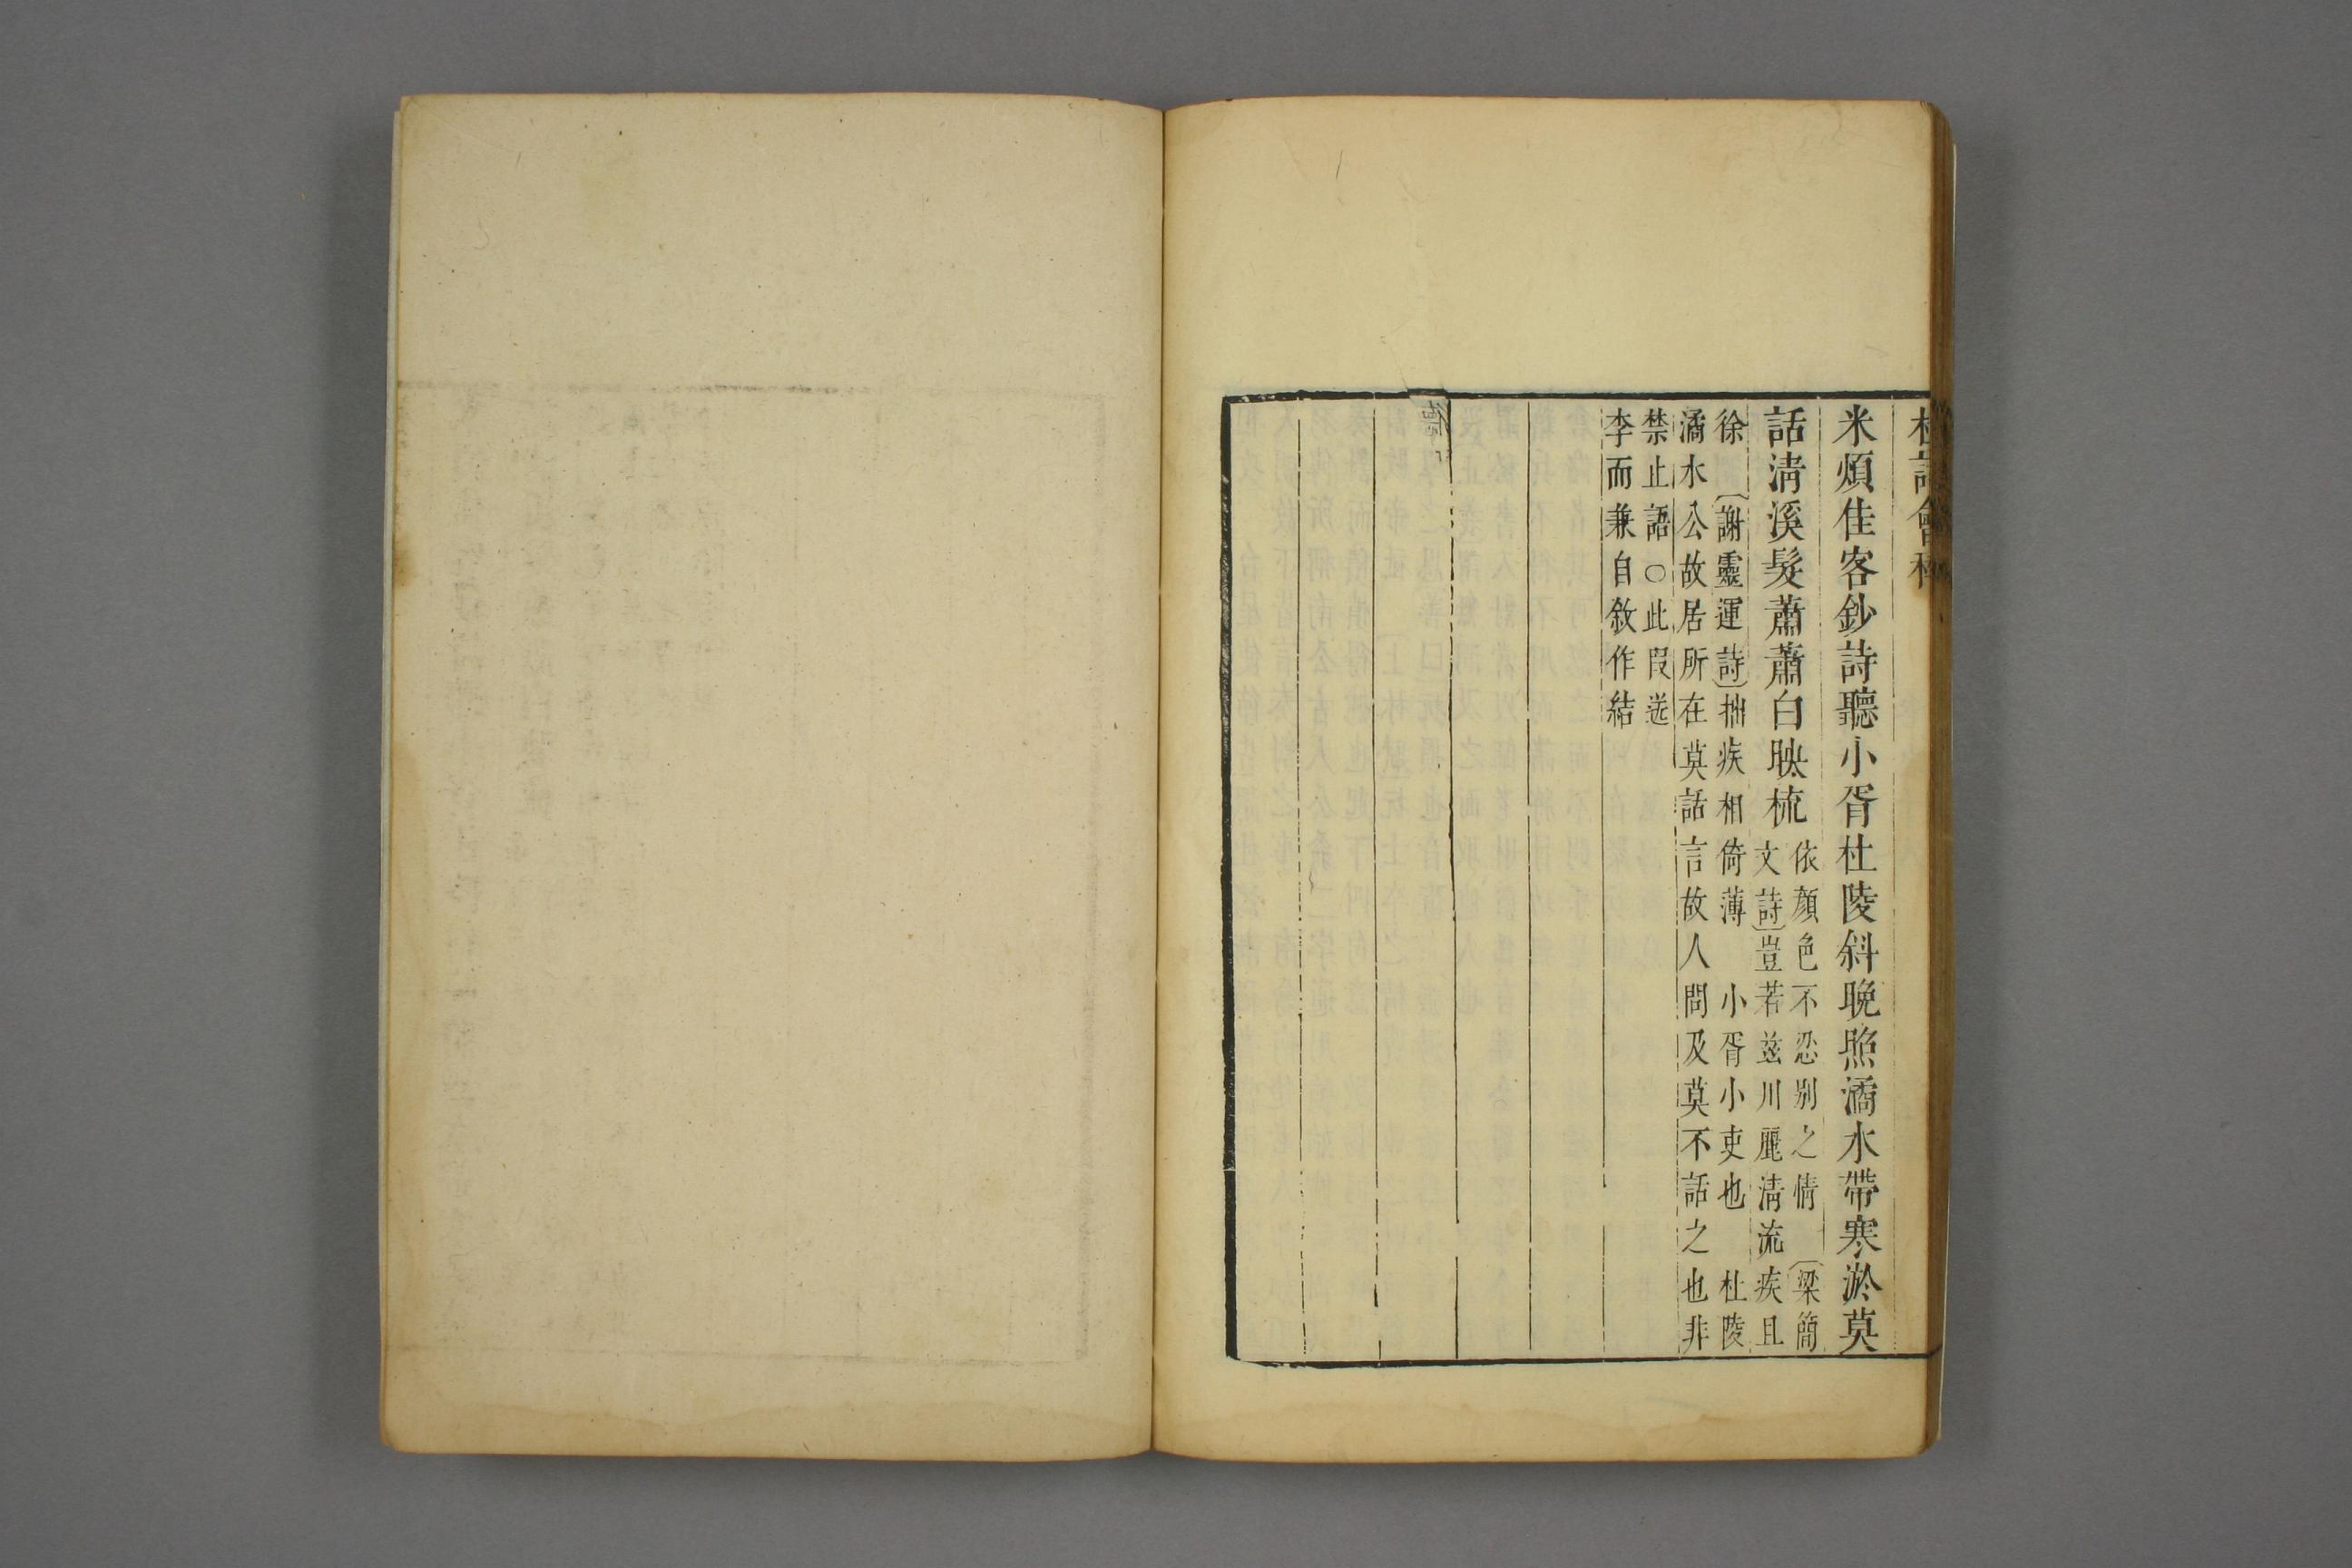 杜詩會稡
米煩佳客鈔詩聽小胥杜陵斜晚照潏水帶寒淤莫
話淸溪髮蕭蕭白映梳
依顏色不忍别之情　〔梁簡
文詩〕豈若茲川麗淸流疾且
徐　〔謝靈運詩〕拙疾相倚薄　小胥小吏也　杜陵
潏水公故居所在莫話言故人問及莫不話之也非
禁止語○此叚送
李而兼自敘作結